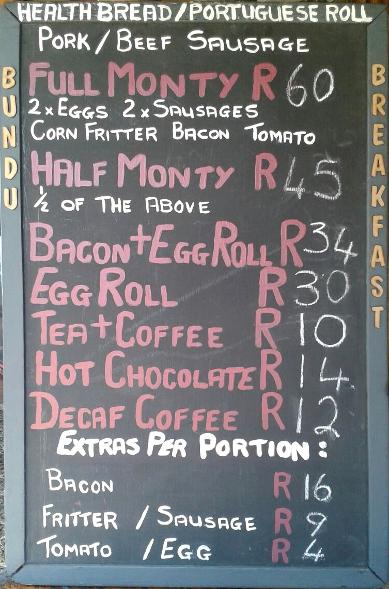 HEALTH BREAD/PORTUGUESE ROLL
PORK/BEEF SAUSAGE
BUNDU
BREAKFAST
FULL MONTY R 60
2xEGGS 2xSAUSAGES
CORN FRITTER BACON TOMATO
HALF MONTY R 45
1/2 OF THE ABOVE
BACON+EGG ROLL R 34
EGG ROLL R 30
TEA+COFFEE R 10
HOT CHOCOLATE R 14
DECAF COFFEE R 12
EXTRAS PER PORTION:
BACON R 16
FRITTER / SAUSAGE R 9
TOMATO / EGG R 4